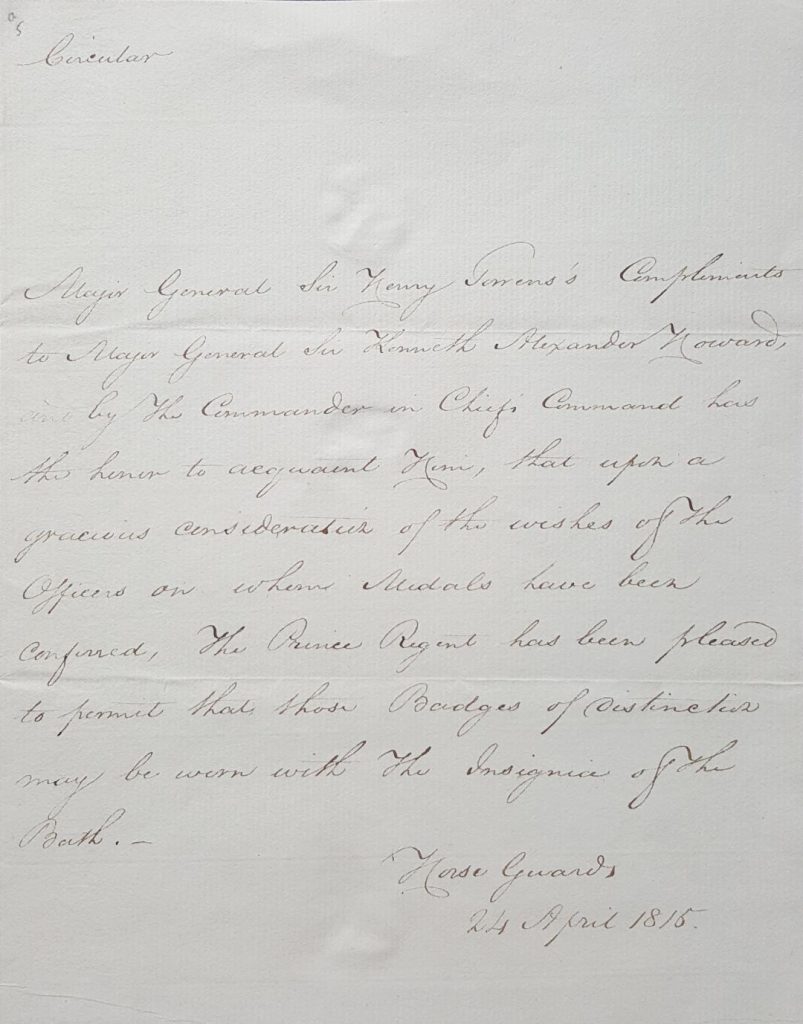 Circular
Major General Sir Henry Torrens's Compliments
to Major General Sir Kenneth Alexander Howard,
and by The Commander in Chief's Command has
the honor to acquaint Him, that upon a
gracious consideration of the wishes of The
Officers on whom Medals have been
conferred, The Prince Regent has been pleased
to permit that those Badges of distinction
may be worn with The Insignia of The
Bath. —
Horse Guards
24 April 1815.